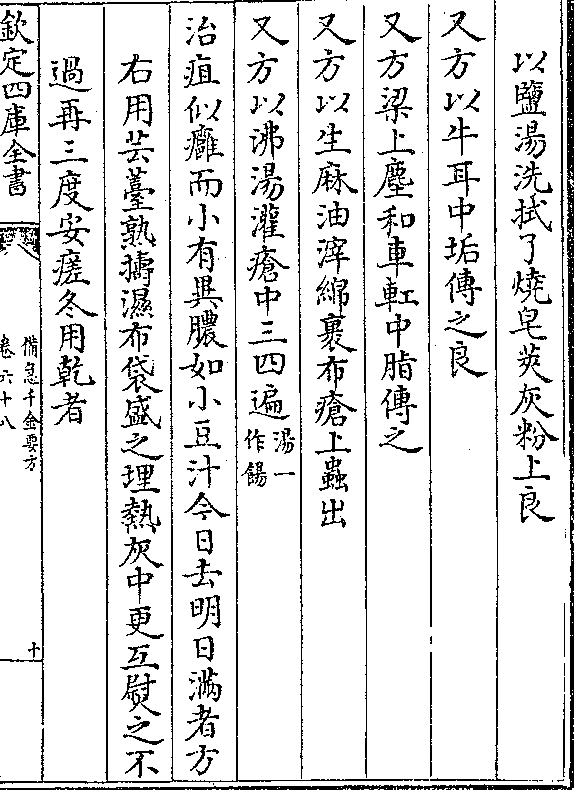 以鹽湯洗拭了燒皂莢灰粉上良
又方以牛耳中垢傅之良
又方梁上塵和車釭中脂傅之
又方以生麻油滓綿裹布瘡上蟲出
又方以沸湯灌瘡中三四遍湯一作餳
治疽似癰而小有異膿如小豆汁今日去明日滿者方
右用芸薹熟擣濕布袋盛之埋熱灰中更互熨之不
過再三度安瘥冬用乾者
欽定四庫全書
備急千金要方
卷六十八
十